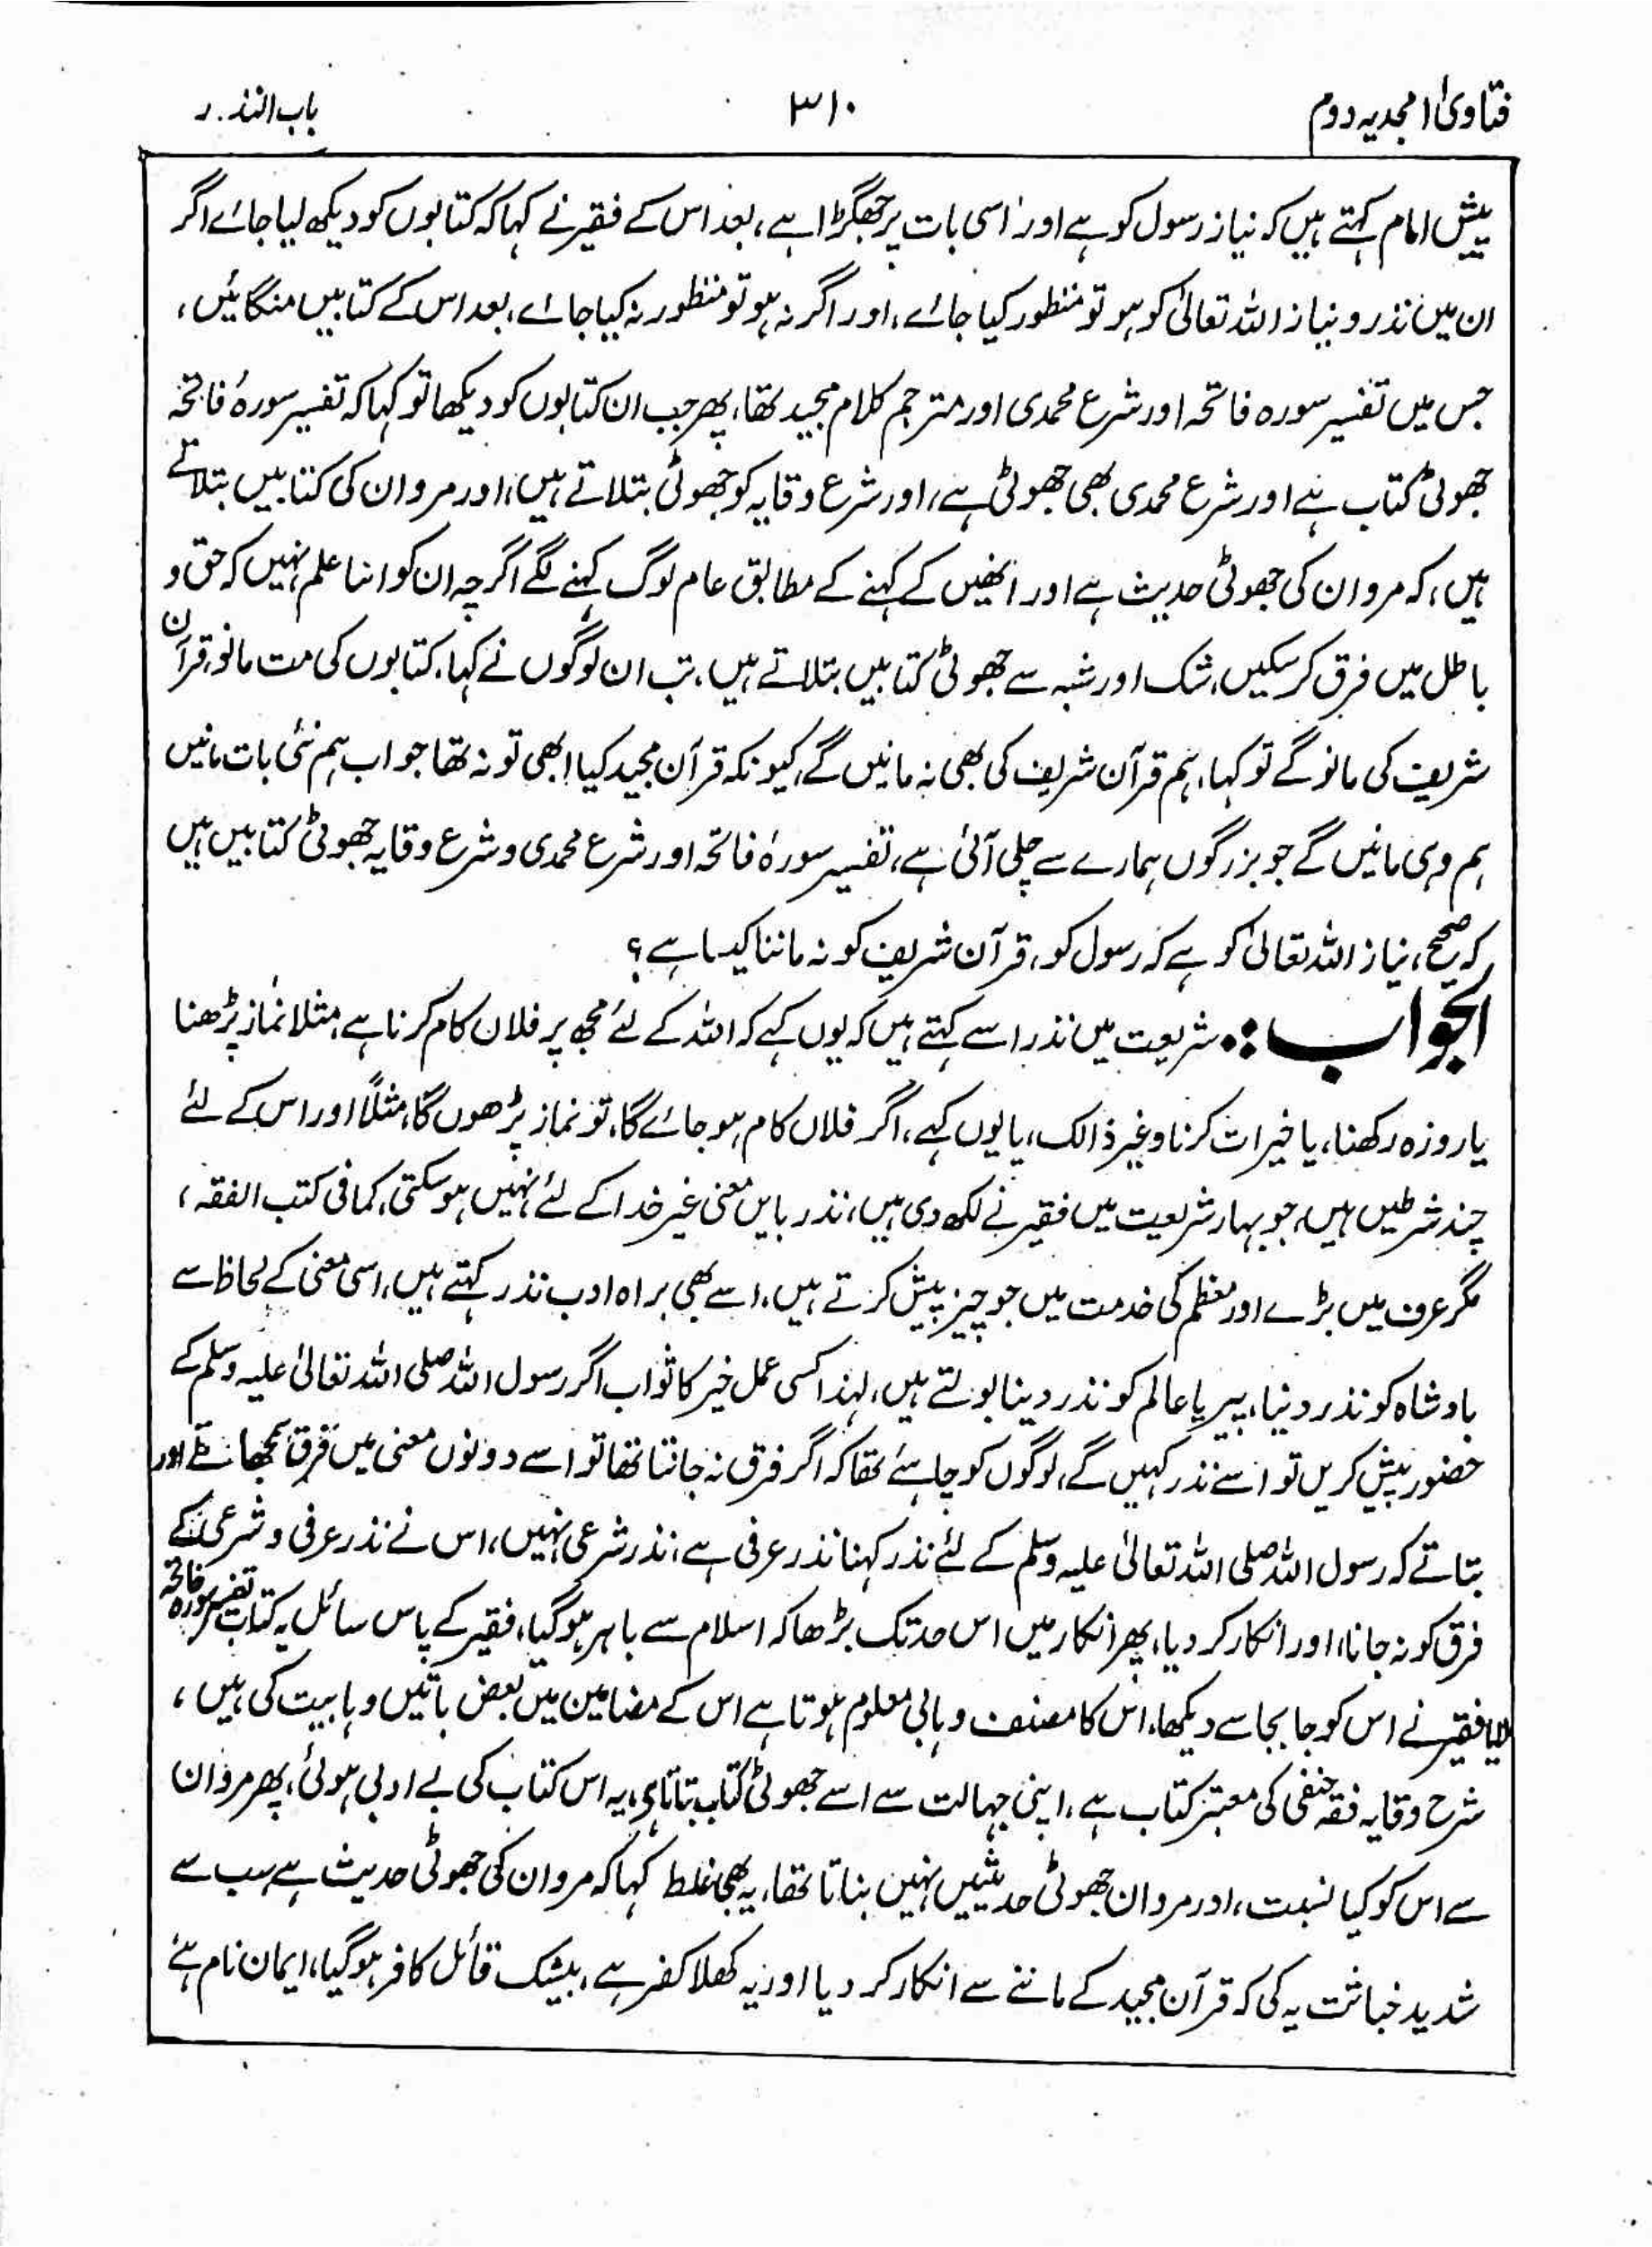 فتاویٰ امجدیہ دوم
۳۱۰
باب النذر
پیش امام کہتے ہیں کہ نیاز رسول کو ہے اور اسی بات پر جھگڑا ہے، بعد اس کے فقیر نے کہا کہ کتابوں کو دیکھ لیا جائے اگر
ان میں نذر و نیاز اللہ تعالیٰ کو ہو تو منظور کیا جائے، اور اگر نہ ہو تو منظور نہ کیا جائے، بعد اس کے کتابیں منگائیں،
جس میں تفسیر سورہ فاتحہ اور شرع محمدی اور مترجم کلام مجید تھا، پھر جب ان کتابوں کو دیکھا تو کہا کہ تفسیر سورۂ فاتحہ
جھوٹی کتاب ہے اور شرع محمدی بھی جھوٹی ہے، اور شرع وقایہ کو جھوٹی بتلاتے ہیں، اور مروان کی کتابیں بتلاتے
ہیں، کہ مروان کی جھوٹی حدیث ہے اور انھیں کے کہنے کے مطابق عام لوگ کہنے لگے اگرچہ ان کو اتنا علم نہیں کہ حق و
باطل میں فرق کرسکیں، شک اور شبہ سے جھوٹی کتابیں بتلاتے ہیں، تب ان لوگوں نے کہا، کتابوں کی مت مانو، قرآن
شریف کی مانو گے تو کہا، ہم قرآن شریف کی بھی نہ مانیں گے، کیونکہ قرآن مجید کیا ابھی تو نہ تھا جو اب ہم نئی بات مانیں
ہم وہی مانیں گے جو بزرگوں ہمارے سے چلی آئی ہے، تفسیر سورۂ فاتحہ اور شرع محمدی و شرع وقایہ جھوٹی کتابیں ہیں
کہ صحیح، نیاز اللہ تعالیٰ کو ہے کہ رسول کو، قرآن شریف کو نہ ماننا کیسا ہے؟
الجواب :۔ شریعت میں نذر اسے کہتے ہیں کہ یوں کہے کہ اللہ کے لئے مجھ پر فلان کام کرنا ہے، مثلا نماز پڑھنا
یا روزہ رکھنا، یا خیرات کرنا وغیر ذالک، یا یوں کہے، اگر فلاں کام ہو جائے گا، تو نماز پڑھوں گا، مثلاً اور اس کے لئے
چند شرطیں ہیں، جو بہار شریعت میں فقیر نے لکھ دی ہیں، نذر بایں معنی غیر خدا کے لئے نہیں ہوسکتی، کما فی کتب الفقہ،
مگر عرف میں بڑے اور معظم کی خدمت میں جو چیز پیش کرتے ہیں، اسے بھی براہ ادب نذر کہتے ہیں، اسی معنی کے لحاظ سے
بادشاہ کو نذر دینا، پیر یا عالم کو نذر دینا بولتے ہیں، لہذا کسی عمل خیر کا ثواب اگر رسول اللہ صلی اللہ تعالیٰ علیہ وسلم کے
حضور پیش کریں تو اسے نذر کہیں گے، لوگوں کو چاہئے تھا کہ اگر فرق نہ جانتا تھا تو اسے دونوں معنی میں فرق سمجھاتے اور
بتاتے کہ رسول اللہ صلی اللہ تعالیٰ علیہ وسلم کے لئے نذر کہنا نذر عرفی ہے، نذر شرعی نہیں، اس نے نذر عرفی و شرعی کے
فرق کو نہ جانا، اور انکار کر دیا، پھر انکار میں اس حد تک بڑھا کہ اسلام سے باہر ہوگیا، فقیر کے پاس سائل یہ کتاب تفسیر سورہ فاتحہ
لایا فقیر نے اس کو جا بجا سے دیکھا، اس کا مصنف وہابی معلوم ہوتا ہے اس کے مضامین میں بعض باتیں وہابیت کی ہیں،
شرح وقایہ فقہ حنفی کی معتبر کتاب ہے، اپنی جہالت سے اسے جھوٹی کتاب بتاتا ہے، یہ اس کتاب کی بے ادبی ہوئی، پھر مروان
سے اس کو کیا نسبت، اور مروان جھوٹی حدیثیں نہیں بناتا تھا، یہ بھی غلط کہا کہ مروان کی جھوٹی حدیث ہے سب سے
شدید خباثت یہ کی کہ قرآن مجید کے ماننے سے انکار کر دیا اور یہ کھلا کفر ہے، بیشک قائل کافر ہوگیا، ایمان نام ہے